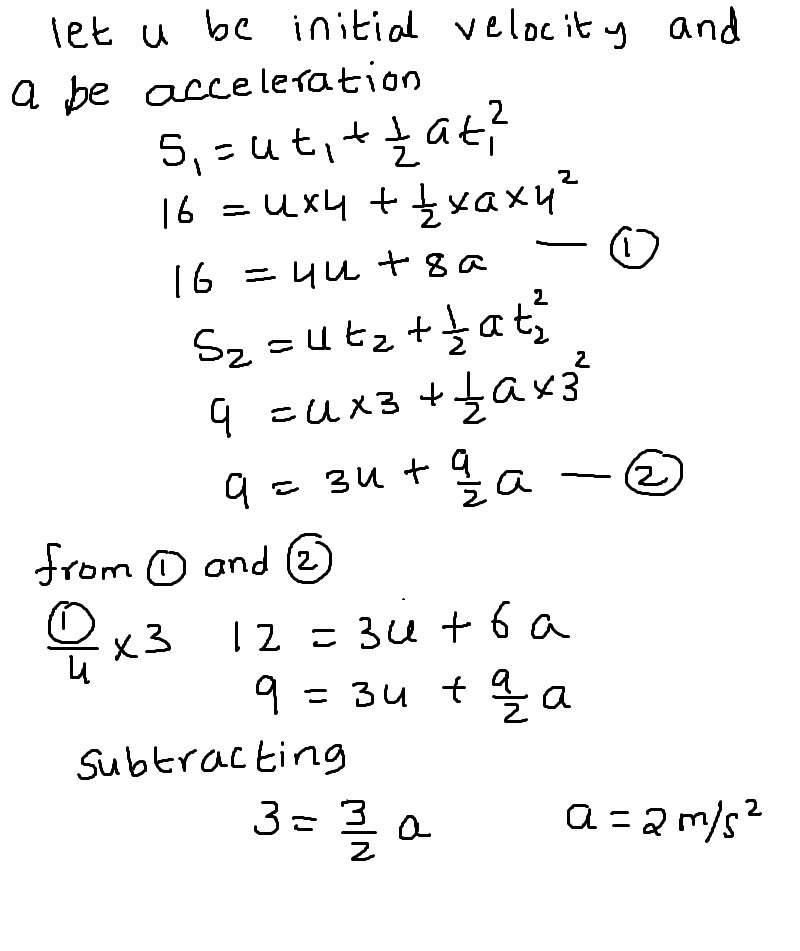 let u be initial velocity and
a be acceleration
S₁ = ut₁ + ½ at₁²
16 = u×4 + ½ × a × 4²
16 = 4u + 8a — ①
S₂ = ut₂ + ½ at₂²
9 = u×3 + ½ a × 3²
9 = 3u + 9/2 a — ②
from ① and ②
①/4 × 3 12 = 3u + 6a
9 = 3u + 9/2 a
subtracting
3 = 3/2 a a = 2 m/s²